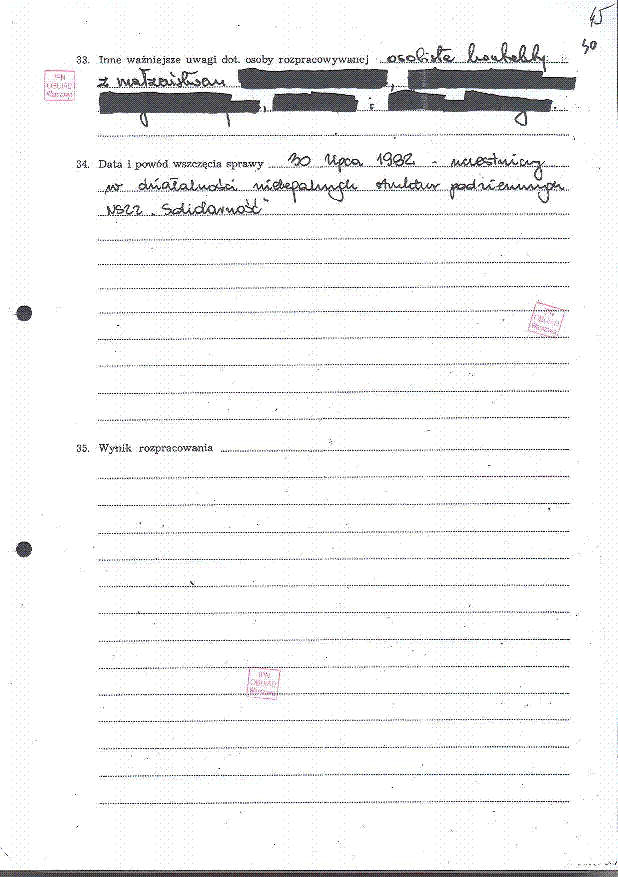 45
30
33. Inne ważniejsze uwagi dot. osoby rozpracowywanej osobiste kontakty
z małżeństwem , 
, i .
34. Data i powód wszczęcia sprawy 30 lipca 1982 - uczestniczy
w działalności nielegalnych struktur podziemnych
NSZZ "Solidarność"
35. Wynik rozpracowania
IPN
OBUiAD
Warszawa
IPN
OBUiAD
Warszawa
IPN
OBUiAD
Warszawa